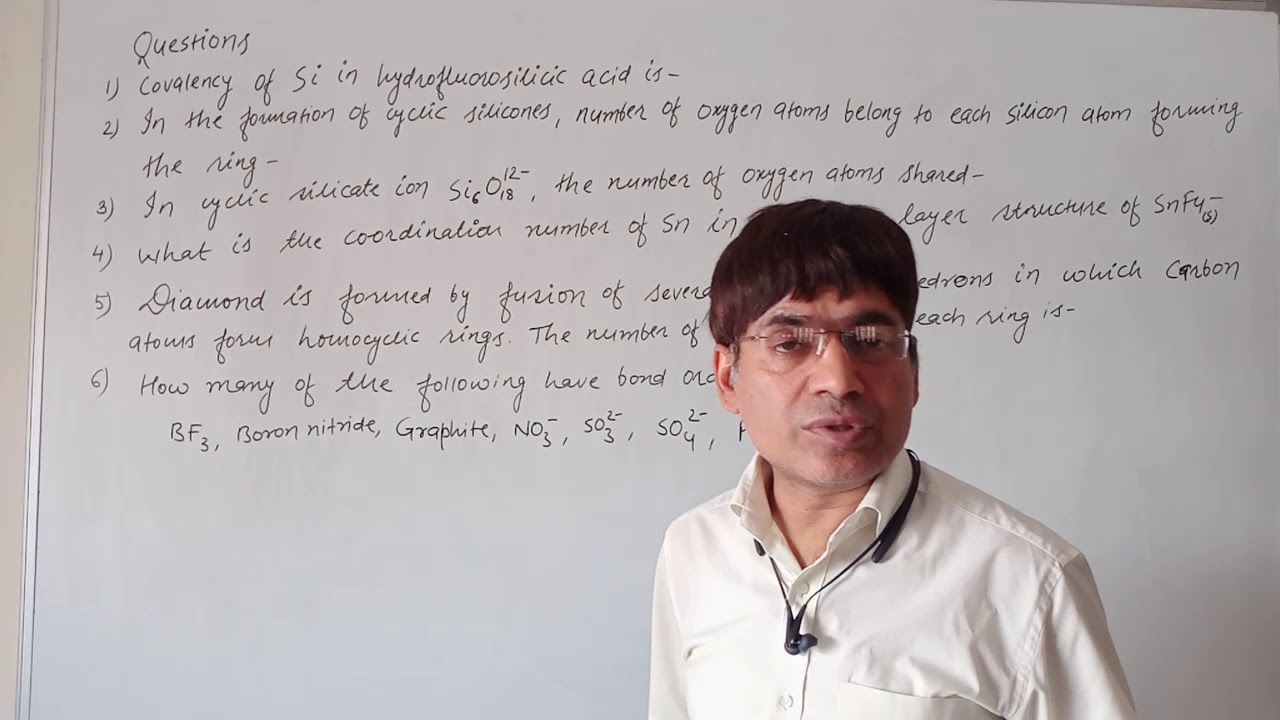 Questions
1) Covalency of Si in hydrofluorosilicic acid is-
2) In the formation of cyclic silicones, number of oxygen atoms belong to each silicon atom forming
the ring-
3) In cyclic silicate ion Si₆O₁₈¹²⁻, the number of oxygen atoms shared-
4) What is the coordination number of Sn in layer structure of SnF₄₍ₛ₎-
5) Diamond is formed by fusion of edrons in which Carbon
atoms form homocyclic rings. The number of each ring is-
6) How many of the following have bond
BF₃, Boron nitride, Graphite, NO₃⁻, SO₃²⁻, SO₄²⁻,